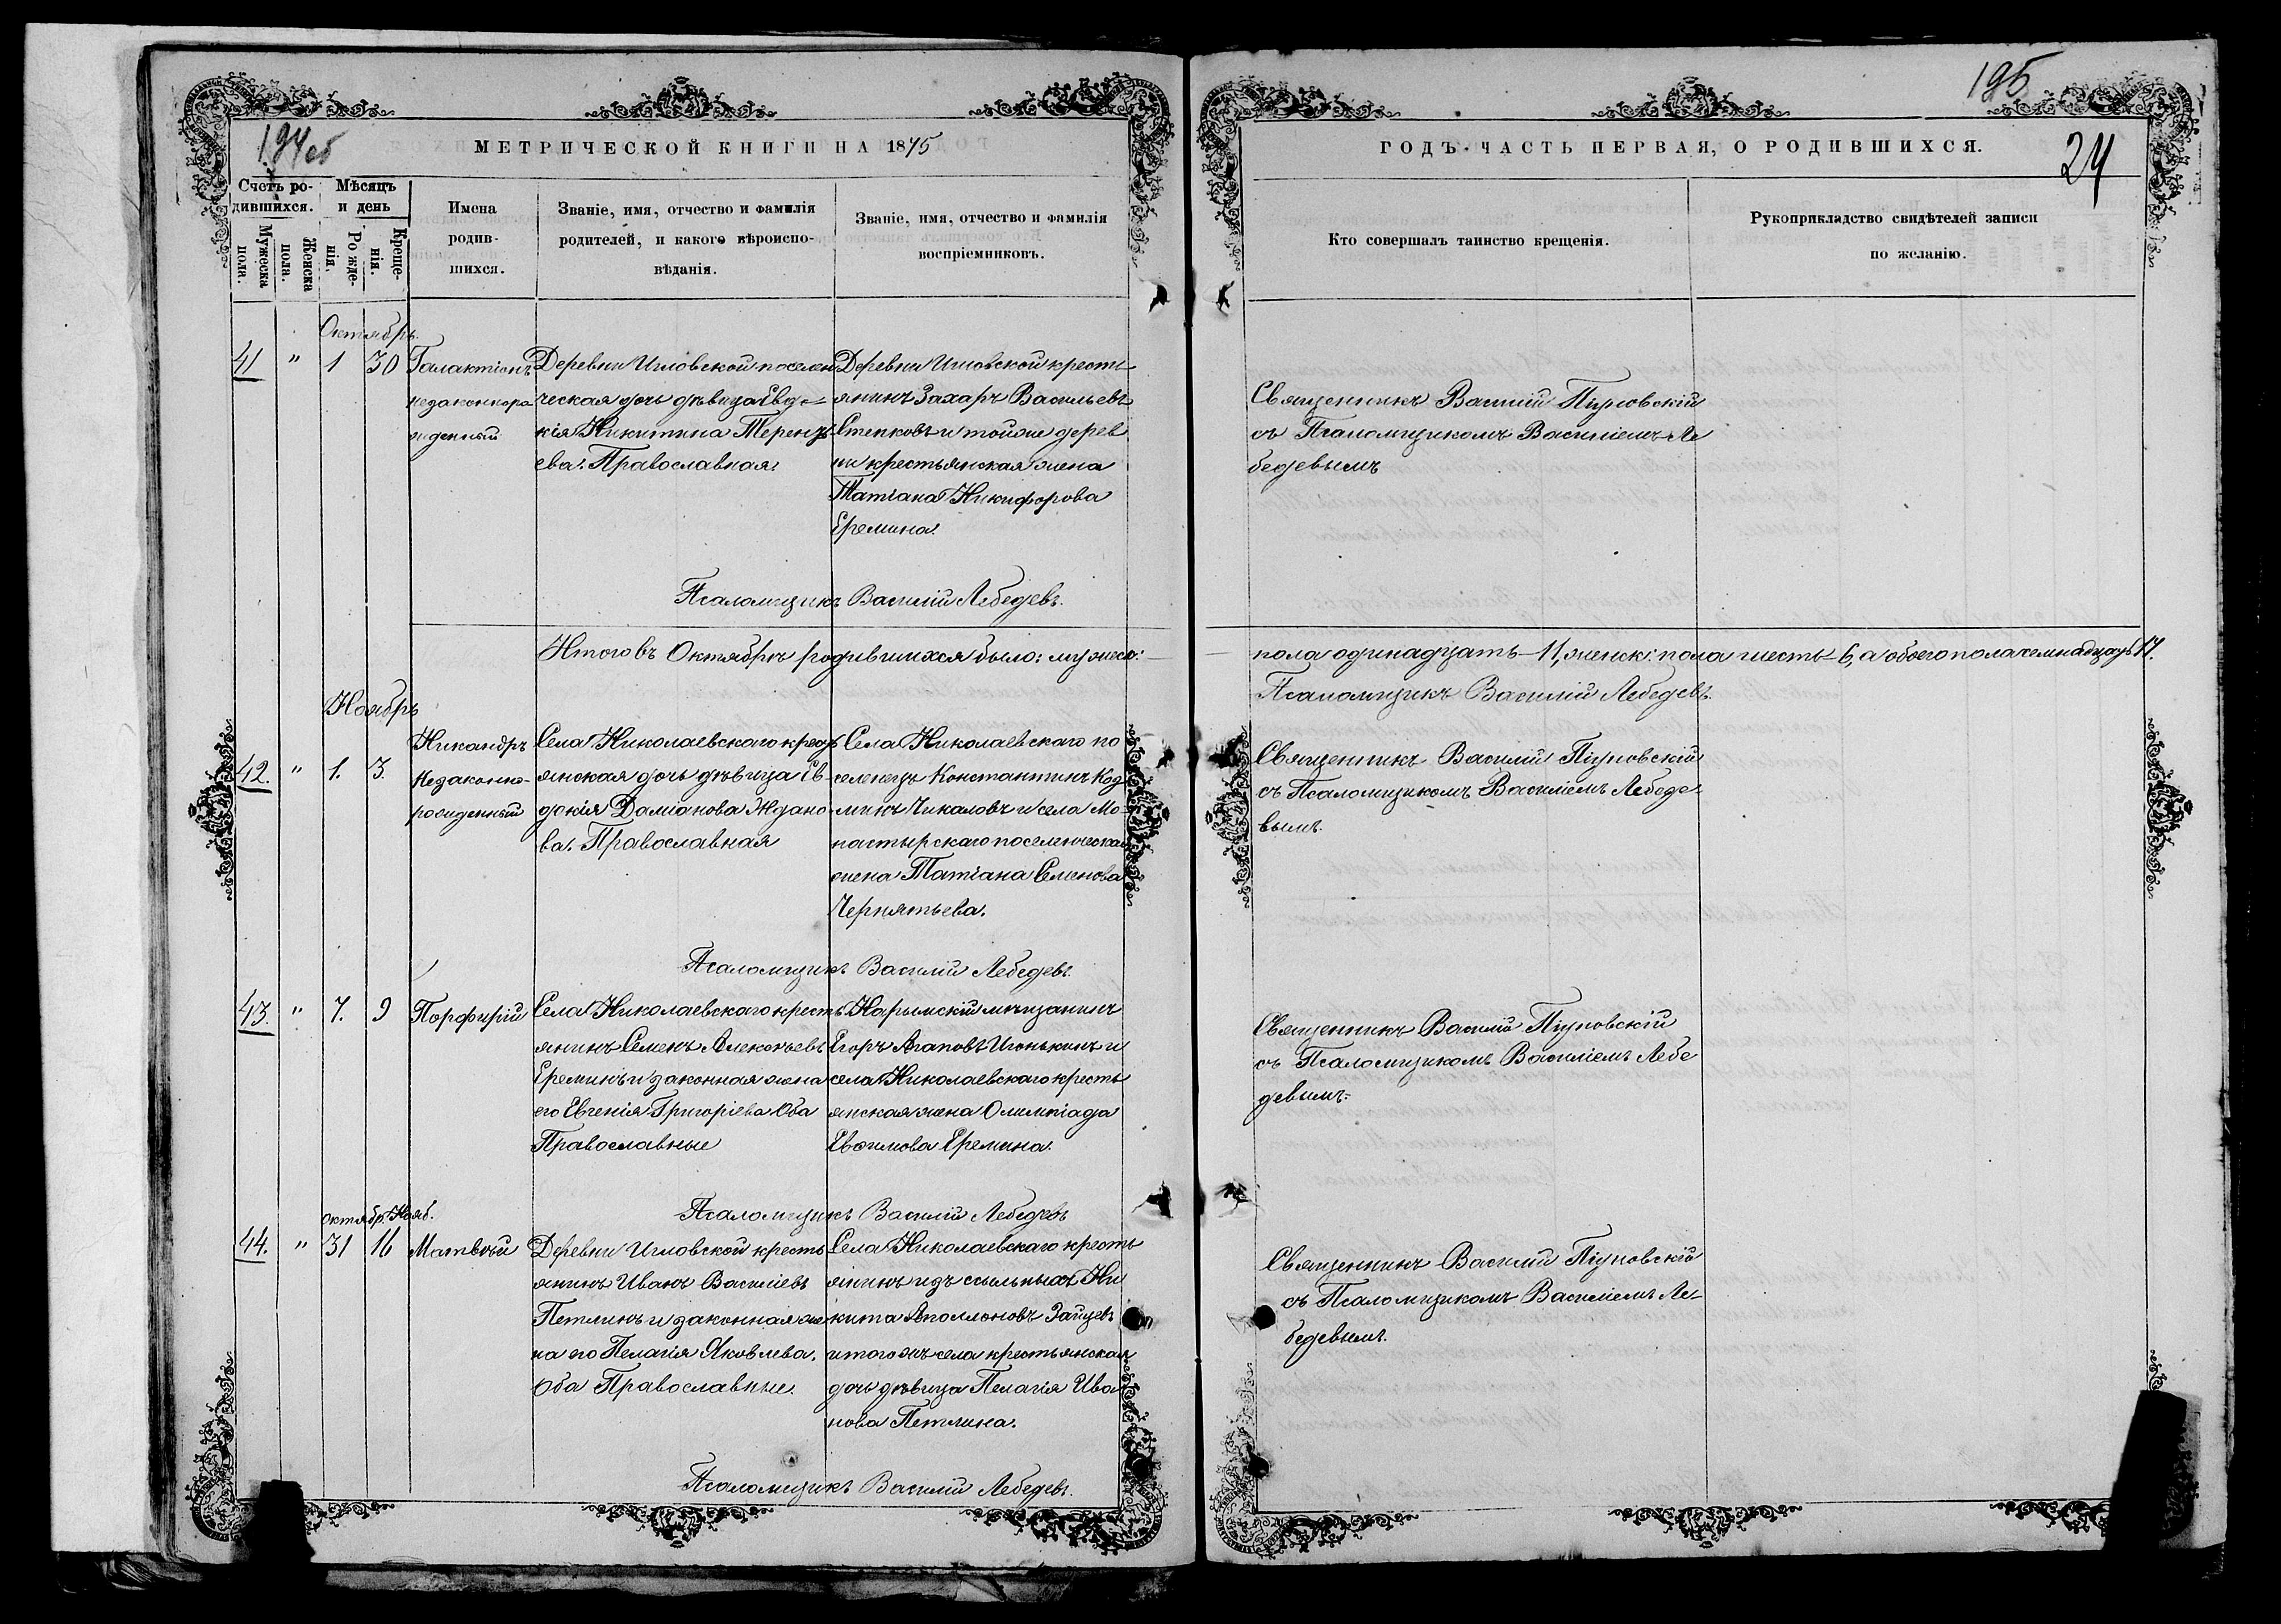 194об
МЕТРИЧЕСКОЙ КНИГИ НА 1875
Счетъ ро-
дившихся.
Мѣсяцъ
и день
Мужеска
пола.
Женска
пола.
Рожде-
нія.
Креще-
нія.
Имена
родив-
шихся.
Званіе, имя, отчество и фамилія
родителей, и какого вѣроиспо-
вѣданія.
Званіе, имя, отчество и фамилія
воспріемниковъ.
Октябрь.
41 " 1 30
Галактіонъ
незаконноро
жденный
Деревни Игловской поселен
ческая дочь дѣвица Евдо-
кія Никитина Терентъ
ева. Православная.
Деревни Игловской кресть-
янинъ Захаръ Васильевъ
Степковъ и тойже дерев
ни крестьянская жена
Татіана Никифорова
Еремина.
Псаломщикъ Василій Лебедевъ.
Итого въ Октябрѣ родившихся было: мужеск:
Ноябрь
42. " 1. 3.
Никандръ
Незаконно-
рожденный
Села Николаевскаго кресть
янская дочь дѣвица Ев-
докія Даміанова Ждано-
ва. Православная
Села Николаевскаго по
селенецъ Константинъ Код
минъ Чикаловъ и села Мо-
настырскаго поселенческая
жена Татіана Семенова
Чернятьева.
Псаломщикъ Василій Лебедевъ.
43. " 7. 9
Порфирій
Села Николаевскаго кресть
янинъ Семенъ Алексѣевъ
Ереминъ и законная жена
его Евгенія Григоріева Оба
Православные
Нарымскій мѣщанинъ
Егоръ Агаповъ Игонькинъ и
села Николаевскаго кресть
янская жена Олимпіада
Евѳимова Еремина.
Псаломщикъ Василій Лебедевъ
Октябр. Нояб.
44. " 31 16
Матвѣй
Деревни Игловской кресть
янинъ Иванъ Василіевъ
Петлинъ и законная же
на его Пелагія Яковлева.
Оба Православные.
Села Николаевскаго кресть
янинъ изъ ссыльныхъ Ни
кита Аполлоновъ Зайцевъ
и тогожъ села крестьянская
дочь дѣвица Пелагія Ива
нова Петлина.
Псаломщикъ Василій Лебедевъ.
195
ГОДЪ ЧАСТЬ ПЕРВАЯ, О РОДИВШИХСЯ.
24
Кто совершалъ таинство крещенія.
Рукоприкладство свидѣтелей записи
по желанію.
Священникъ Василій
съ Псаломщикомъ Василіемъ Ле
бедевымъ
пола одинадцать–11, женск: пола шесть–6, а обоего пола семнадцать 17.
Псаломщикъ Василій Лебедевъ.
Священникъ Василій
съ Псаломщикомъ Василіемъ Лебеде-
вымъ.
Священникъ Василій
съ Псаломщикомъ Василіемъ Лебе
девымъ.
Священникъ Василій
съ Псаломщикомъ Василіемъ Ле-
бедевымъ.